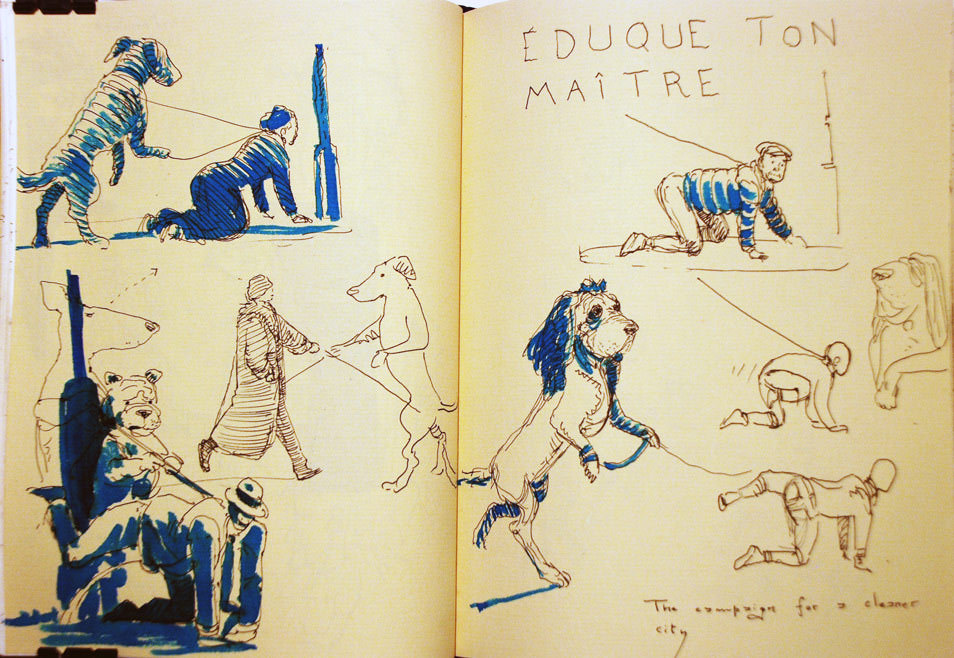 ÉDUQUE TON
MAÎTRE
The campaign for a cleaner
city